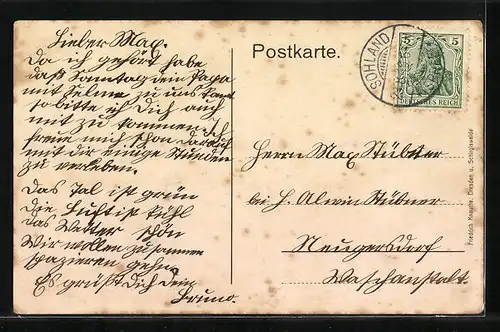 Lieber Max.
Da ich gehört habe
daß Sonntag dein Papa
mit Helme zu uns kommt
so bitte ich Dich auch
mit zu kommen. Ich
freue mich schon darauf
mit dir einige Stunden
zu verleben.
Das Tal ist grün
die Luft ist kühl
das Wetter schön
Wir wollen zusammen
spazieren gehn
Es grüßt dich dein
Bruno.
Postkarte.
SOHLAND
5 5
DEUTSCHES REICH
Herrn Max Stübner
bei H. Alwin Stübner
Neugersdorf
Waschanstalt.
Friedrich Knauthe, Dresden u. Schirgiswalde